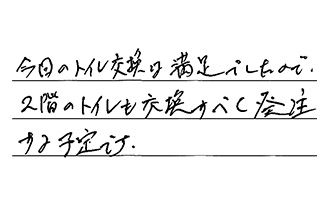 今回のトイレ交換は満足でしたので.
2階のトイレも交換すべく発注
する予定です.